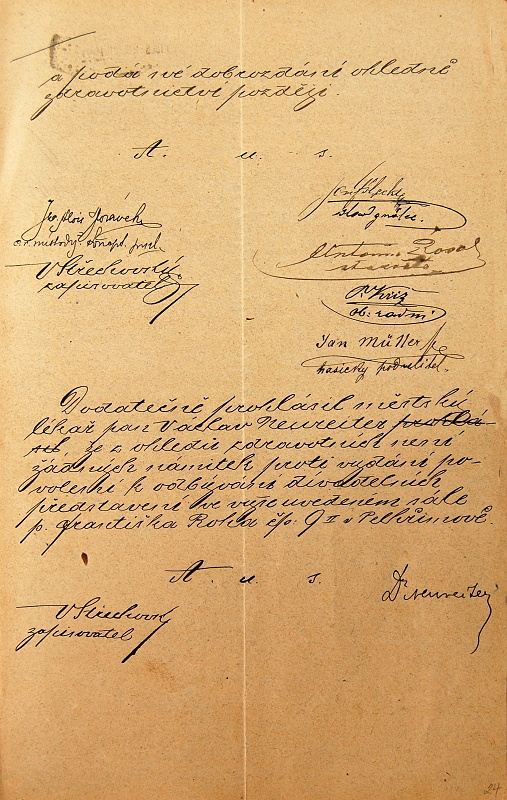 a podá své dobrozdání ohledně
zdravotnictví později.
A. u. s.
V Střechovský
zapisovatel
Antonín Rosa
starosta
P. Kříž
ob: radní
Jan Müller
hasický podvelitel.
Dodatečně prohlásil městský
lékař pan Václav Neureiter prohlá-
sil, že z ohledů zdravotních není
žádných námitek proti vydání po-
volení k odbývání divadelních
představení ve výše uvedeném sále
p. Františka Roha čp. 9 II v Pelhřimově.
A. u. s.
Dr Neureiter
V Střechovský
zapisovatel
24